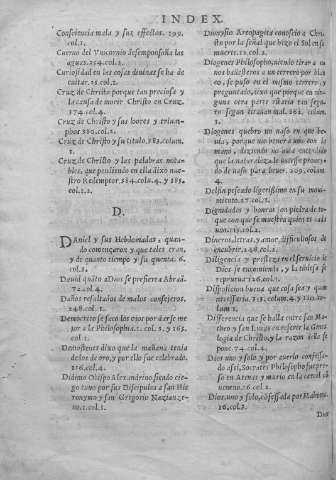 INDEX.
Consciencia mala y sus effectos. 299.
col.1.
Cuerno del Vnicornio desemponçoña las
aguas. 254.col.2.
Curiosidad en las cosas diuinas se ha de
euitar. 25.col.2.
Cruz de Christo porque tan preciosa y
la causa de morir Christo en Cruz.
174.col.4.
Cruz de Christo y sus loores y trium-
phos 180.col.1.
Cruz de Christo y su titulo.183.colum.
1.
Cruz de Christo y las palabras nota-
bles, que pendiendo en ella dixo nue-
stro Redemptor 184.colu.4. y 185.
col.1.2.
D.
Daniel y sus Hebdomadas quan-
do començaron y que teles eran,
y de quanto tiempo y su quenta. 6.
col.2.
Dauid quãto a Dios se prefiere a Abraã.
72.col.4.
Daños resultados de malos consejeros.
248.col.1.
Democrito se sacò los ojos por darse me-
jor a la Philosophia. 1. col. 2. y 165.
col.1.
Demostenes dixo que la mañana tenia
dedos de oro, y por ello fue celebrado.
216.col.4.
Didimo Obispo Alexandrino siendo cie-
go tuuo por sus Discipulos a san Hie
ronymo y san Gregorio Nazianze-
no.1.col.1.
Dionysio Areopagita conoscio a Chri-
sto por la señal que hizo el Sol en su
muerte.12.col.2.
Diogenes Philosopho, viendo tirar a
vnos ballesteros a vn terrero por blan-
co, se puso en el mismo terrero y
preguntado, que porque dixo que en nin-
guna otra parte estaria tan segu-
ro segun tirauan mal. 282. colum.
1.
Diogenes quebro vn vaso en que be-
uia, y porque vio beuer a vno con la
mano, diziendo no auia entendido
que la naturaleza le ouiesse proueydo
de vaso para beuer. 209. colum.
4.
Delfin pescado ligerissimo en su moui-
miento.27.col.1.
Dignidades y honras son piedra de to-
que con que se muestra quien es cada
vno.115.col.2.
Dineros, letras, y amor, dificultosos de
encubrir.248.col.1.
Diligencia y presteza en el seruicio de
Dios se encomienda, y la tibieza se
reprueua 126.col.1.
Disposicion buena que cosa sea y quan
necessaria. 71. colum.4. y 110. co-
lum 1.
Differencia que se halla entre San Ma-
theo y san Lucas en referir la Genea
logia de Christo, y la razon della se
pone. 74.col.4.
Dios vno y solo y por auerlo confessa-
do assi, Socrates Philosopho fue pre-
so en Atenas y murio en la carcel con
veneno. 16 col.1.
Dios vno y solo, cõfessado por Platõn.
16.col.3.
Dios